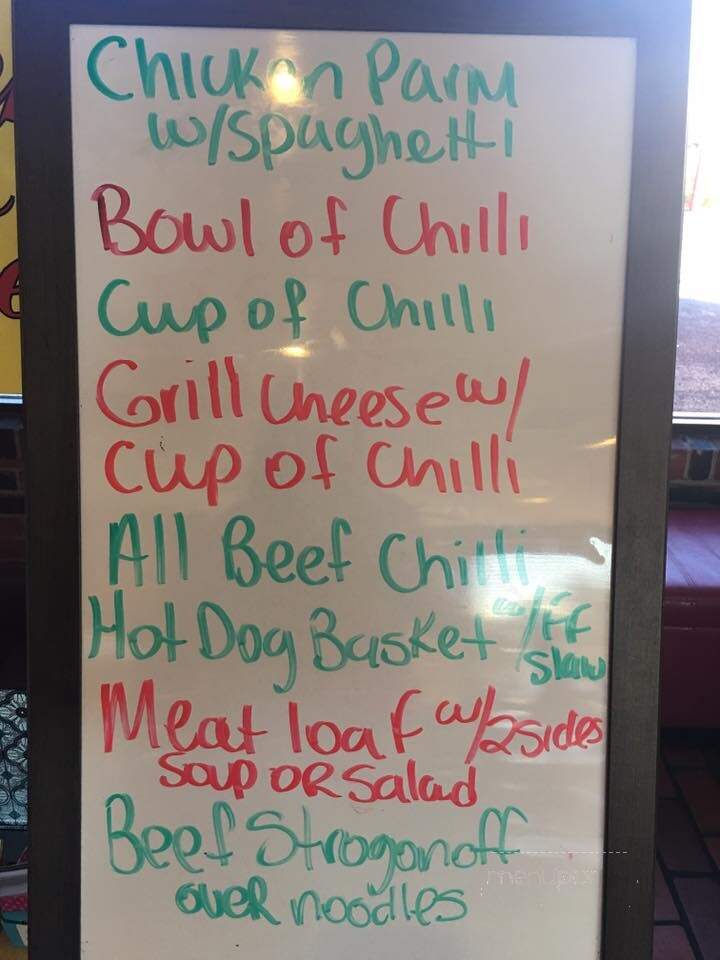 Chicken Parm
w/Spaghetti
Bowl of Chilli
Cup of Chilli
Grill Cheese w/
Cup of Chilli
All Beef Chilli
Hot Dog Basket w/FF
Slaw
Meat loaf w/2sides
Soup OR Salad
Beef Strogonoff
over noodles
menupix